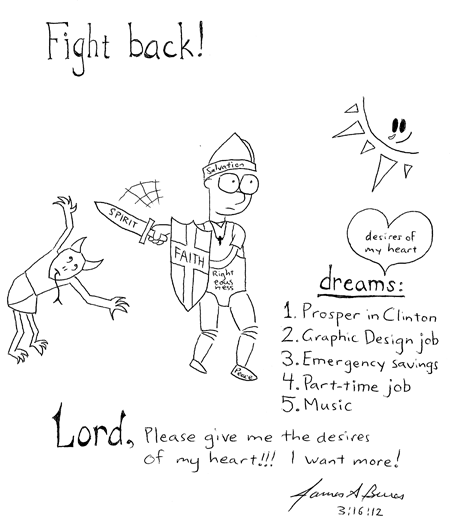 Fight back!
Salvation
SPIRIT
FAITH
Right
eous
ness
Peace
desires of
my heart
dreams:
1. Prosper in Clinton
2. Graphic Design job
3. Emergency savings
4. Part-time job
5. Music
Lord, Please give me the desires
of my heart!!! I want more!
James A
3:16:12